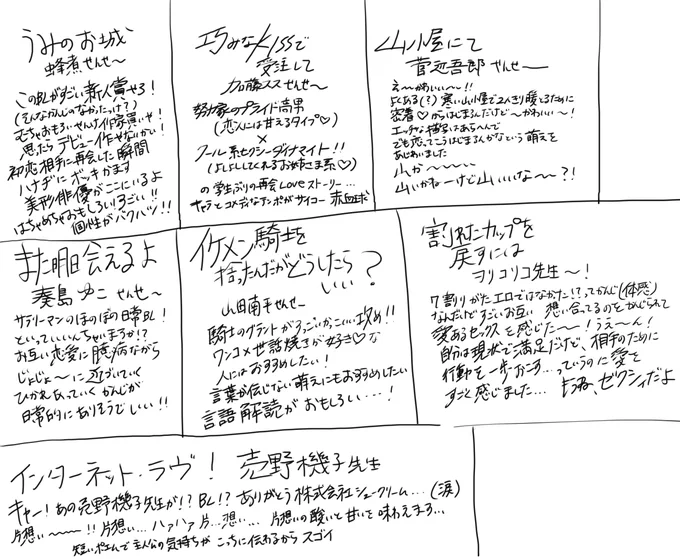 うみのお城
蜂煮せんせ〜
このBLがすごい新人賞やろ!
(そんなかんじのなかったっけ?)
むちゃおもろいせんけ作家買いや!
思たらデビュー作やないかい!
初恋相手に再会した瞬間
ハナヂにボッキかます
美形俳優がここにいるよ
はちゃめちゃおもしろい!すごい!!
個性がバクハツ!!
巧みなKISSで
受注して
加藤スス せんせ〜
努力家のプライド高男
(恋人には甘えるタイプ♡)
×
クール系セクシーダイナマイト!!
(よしよししてくれるお姉さま系♡)
の学生ぶりの再会Loveストーリー…
キャラとコメディなテンポがサイコー
山小屋にて
菅辺吾郎 せんせ〜
え〜かわいい〜!!
よくある(?)寒い山小屋で2人きり暖とるために
密着♡からはじまるんだけど〜かわいい〜!
エッチな描写はあらへんで
でも恋ってこうはじまるんかなという萌えを
あじわいました
山か〜〜〜〜
山いかねーけど山いいな〜〜?!
また明日会えるよ
奏島ゆこ せんせ〜
サラリーマンのほのぼの日常BL!
といっていいんちゃいまうか!?
お互い恋愛に臆病ながら
じょじょ〜に近づいていく
ひかれあっていくかんじが
日常的にありそうでしいい!!
イケメン騎士を
拾ったんだがどうしたら
いい?
山田南平せんせ〜
騎士のグラントがすっごいかっこいい攻め!!
ワンコ×世話焼きが好き♡な
人にはおすすめしたい!
言葉が伝じない萌えにもおすすめしたい
言語解読がおもしろい…!
割れたカップを
戻すには
ヲリコリコ先生〜!
7割りがたエロではなかった!?ってかんじ(体感)
なんだけどすごいお互い想い合ってるのをかんじられて
愛あるセックスを感じた〜!うえ〜ん!
自分は現状で満足だけど、相手のために
行動を一歩うごかす…っていうのに愛を
すごく感じました…
もうね、ゼクシィだよ
インターネット・ラヴ! 売野機子先生
キャー!あの売野機子先生が!?BL!?ありがとう株式会社シュークリーム…(涙)
片想い〜〜〜!!片想い…ハァハァ片…想い…片想いの酸いと甘いを味わえまする…
短いポエムで主人公の気持ちがこっちに伝わるからスゴイ